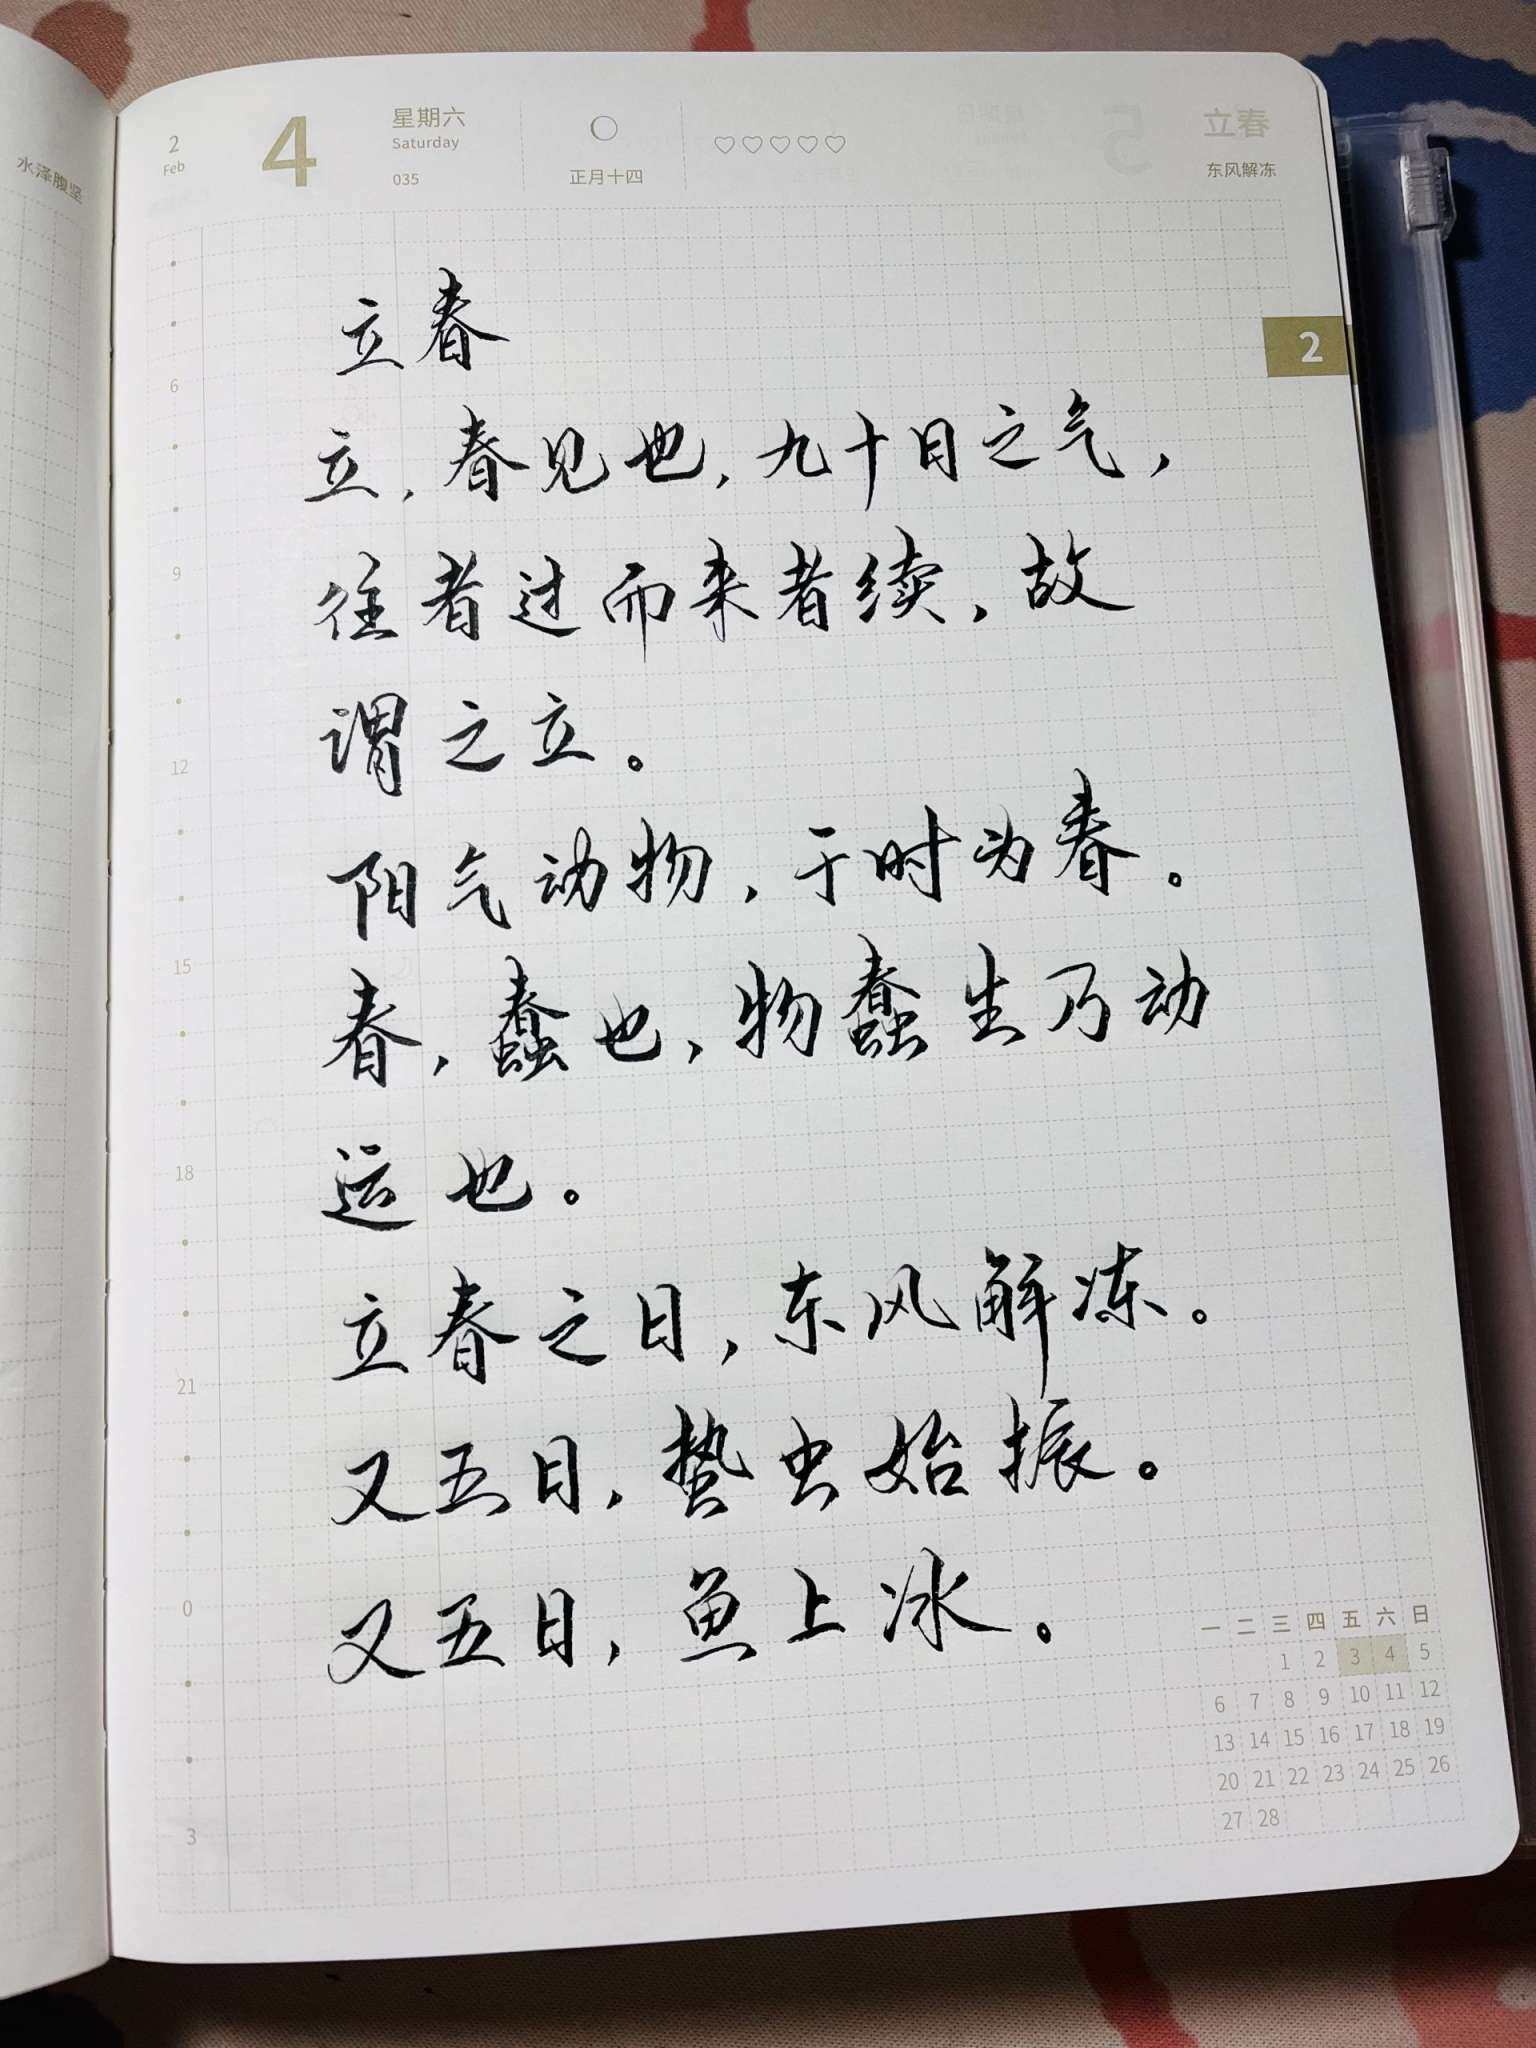 水泽腹坚
2
Feb
4
星期六
Saturday
035
正月十四
♡♡♡♡♡
立春
东风解冻
2
立春
立，春见也，九十日之气，
往者过而来者续，故
谓之立。
阳气动物，于时为春。
春，蠢也，物蠢生乃动
运也。
立春之日，东风解冻。
又五日，蛰虫始振。
又五日，鱼上冰。
6
9
12
15
18
21
0
3
一 二 三 四 五 六 日
1 2 3 4 5
6 7 8 9 10 11 12
13 14 15 16 17 18 19
20 21 22 23 24 25 26
27 28